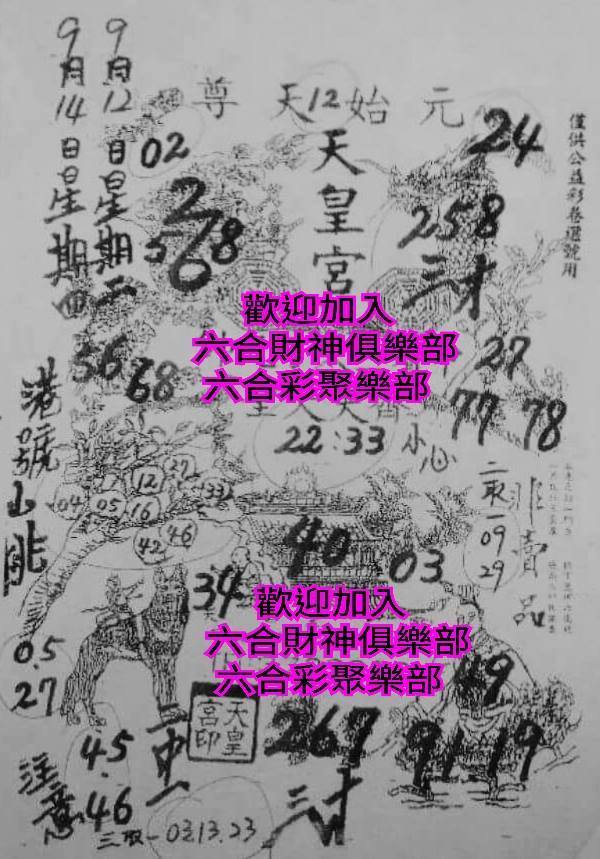 9月12日星期二
9月14日星期四
元始天尊
12
天皇宮
僅供公益彩卷選號用
02
24
2
5 6 8
258
三才
歡迎加入
六合財神俱樂部
六合彩聚樂部
56
68
27
77
78
22:33
小心
港號
27
12
33
04
05
16
42
46
二取一
09
29
非賣品
40
03
34
歡迎加入
六合財神俱樂部
六合彩聚樂部
05
27
49
天皇宮印
二中一
267
三才
91.19
注意
45.
46
三取一03.13.23